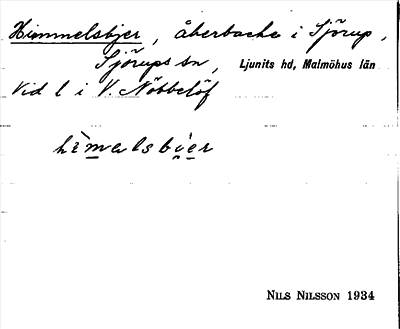 Himmelsbjer, åkerbacke i Sjörup,
Sjörups sn, Ljunits hd, Malmöhus län
Vid l i V. Nöbbelöf
hìmalsbi̯er
NILS NILSSON 1934